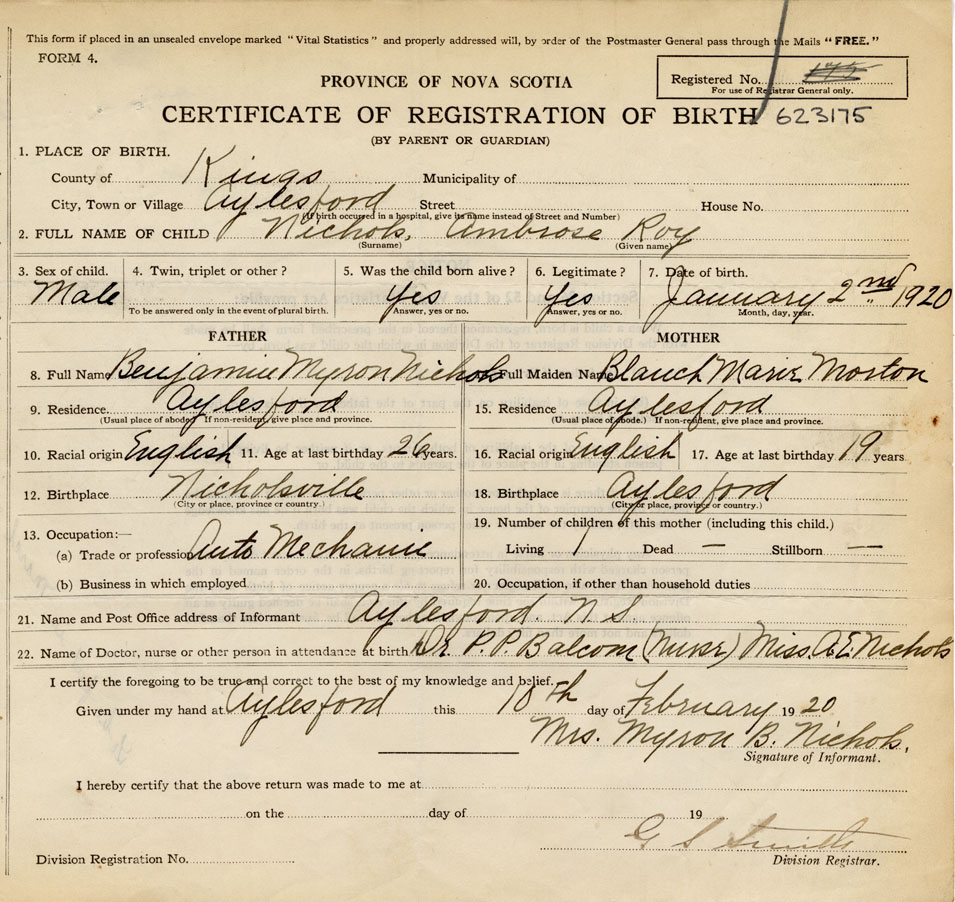 This form if placed in an unsealed envelope marked "Vital Statistics" and properly addressed will, by order of the Postmaster General pass through the Mails "FREE."
FORM 4.
PROVINCE OF NOVA SCOTIA
Registered No. 175
For use of Registrar General only.
CERTIFICATE OF REGISTRATION OF BIRTH 623175
(BY PARENT OR GUARDIAN)
1. PLACE OF BIRTH.
County of Kings Municipality of
City, Town or Village Aylesford Street House No.
(If birth occurred in a hospital, give its name instead of Street and Number)
2. FULL NAME OF CHILD Nichols, Ambrose Roy
(Surname) (Given name)
3. Sex of child. 4. Twin, triplet or other? 5. Was the child born alive? 6. Legitimate? 7. Date of birth.
Male Yes Yes January 2nd 1920
To be answered only in the event of plural birth. Answer, yes or no. Answer, yes or no. Month, day, year.
FATHER MOTHER
8. Full Name Benjamin Myron Nichols Full Maiden Name Blanch Marie Morton
9. Residence. Aylesford 15. Residence Aylesford
(Usual place of abode) If non-resident, give place and province. (Usual place of abode.) If non-resident, give place and province.
10. Racial origin English 11. Age at last birthday 26 years. 16. Racial origin English 17. Age at last birthday 19 years
12. Birthplace Nicholsville 18. Birthplace Aylesford
(City or place, province or country.) (City or place, province or country.)
13. Occupation:— 19. Number of children of this mother (including this child.)
(a) Trade or profession Auto Mechanic Living 1 Dead — Stillborn —
(b) Business in which employed 20. Occupation, if other than household duties
21. Name and Post Office address of Informant Aylesford. N.S.
22. Name of Doctor, nurse or other person in attendance at birth Dr. P.P. Balcom (Nurse) Miss. A.E. Nichols
I certify the foregoing to be true and correct to the best of my knowledge and belief.
Given under my hand at Aylesford this 10th day of February 1920
Mrs. Myron B. Nichols,
Signature of Informant.
I hereby certify that the above return was made to me at
on the day of 19
G S Smith
Division Registration No. Division Registrar.